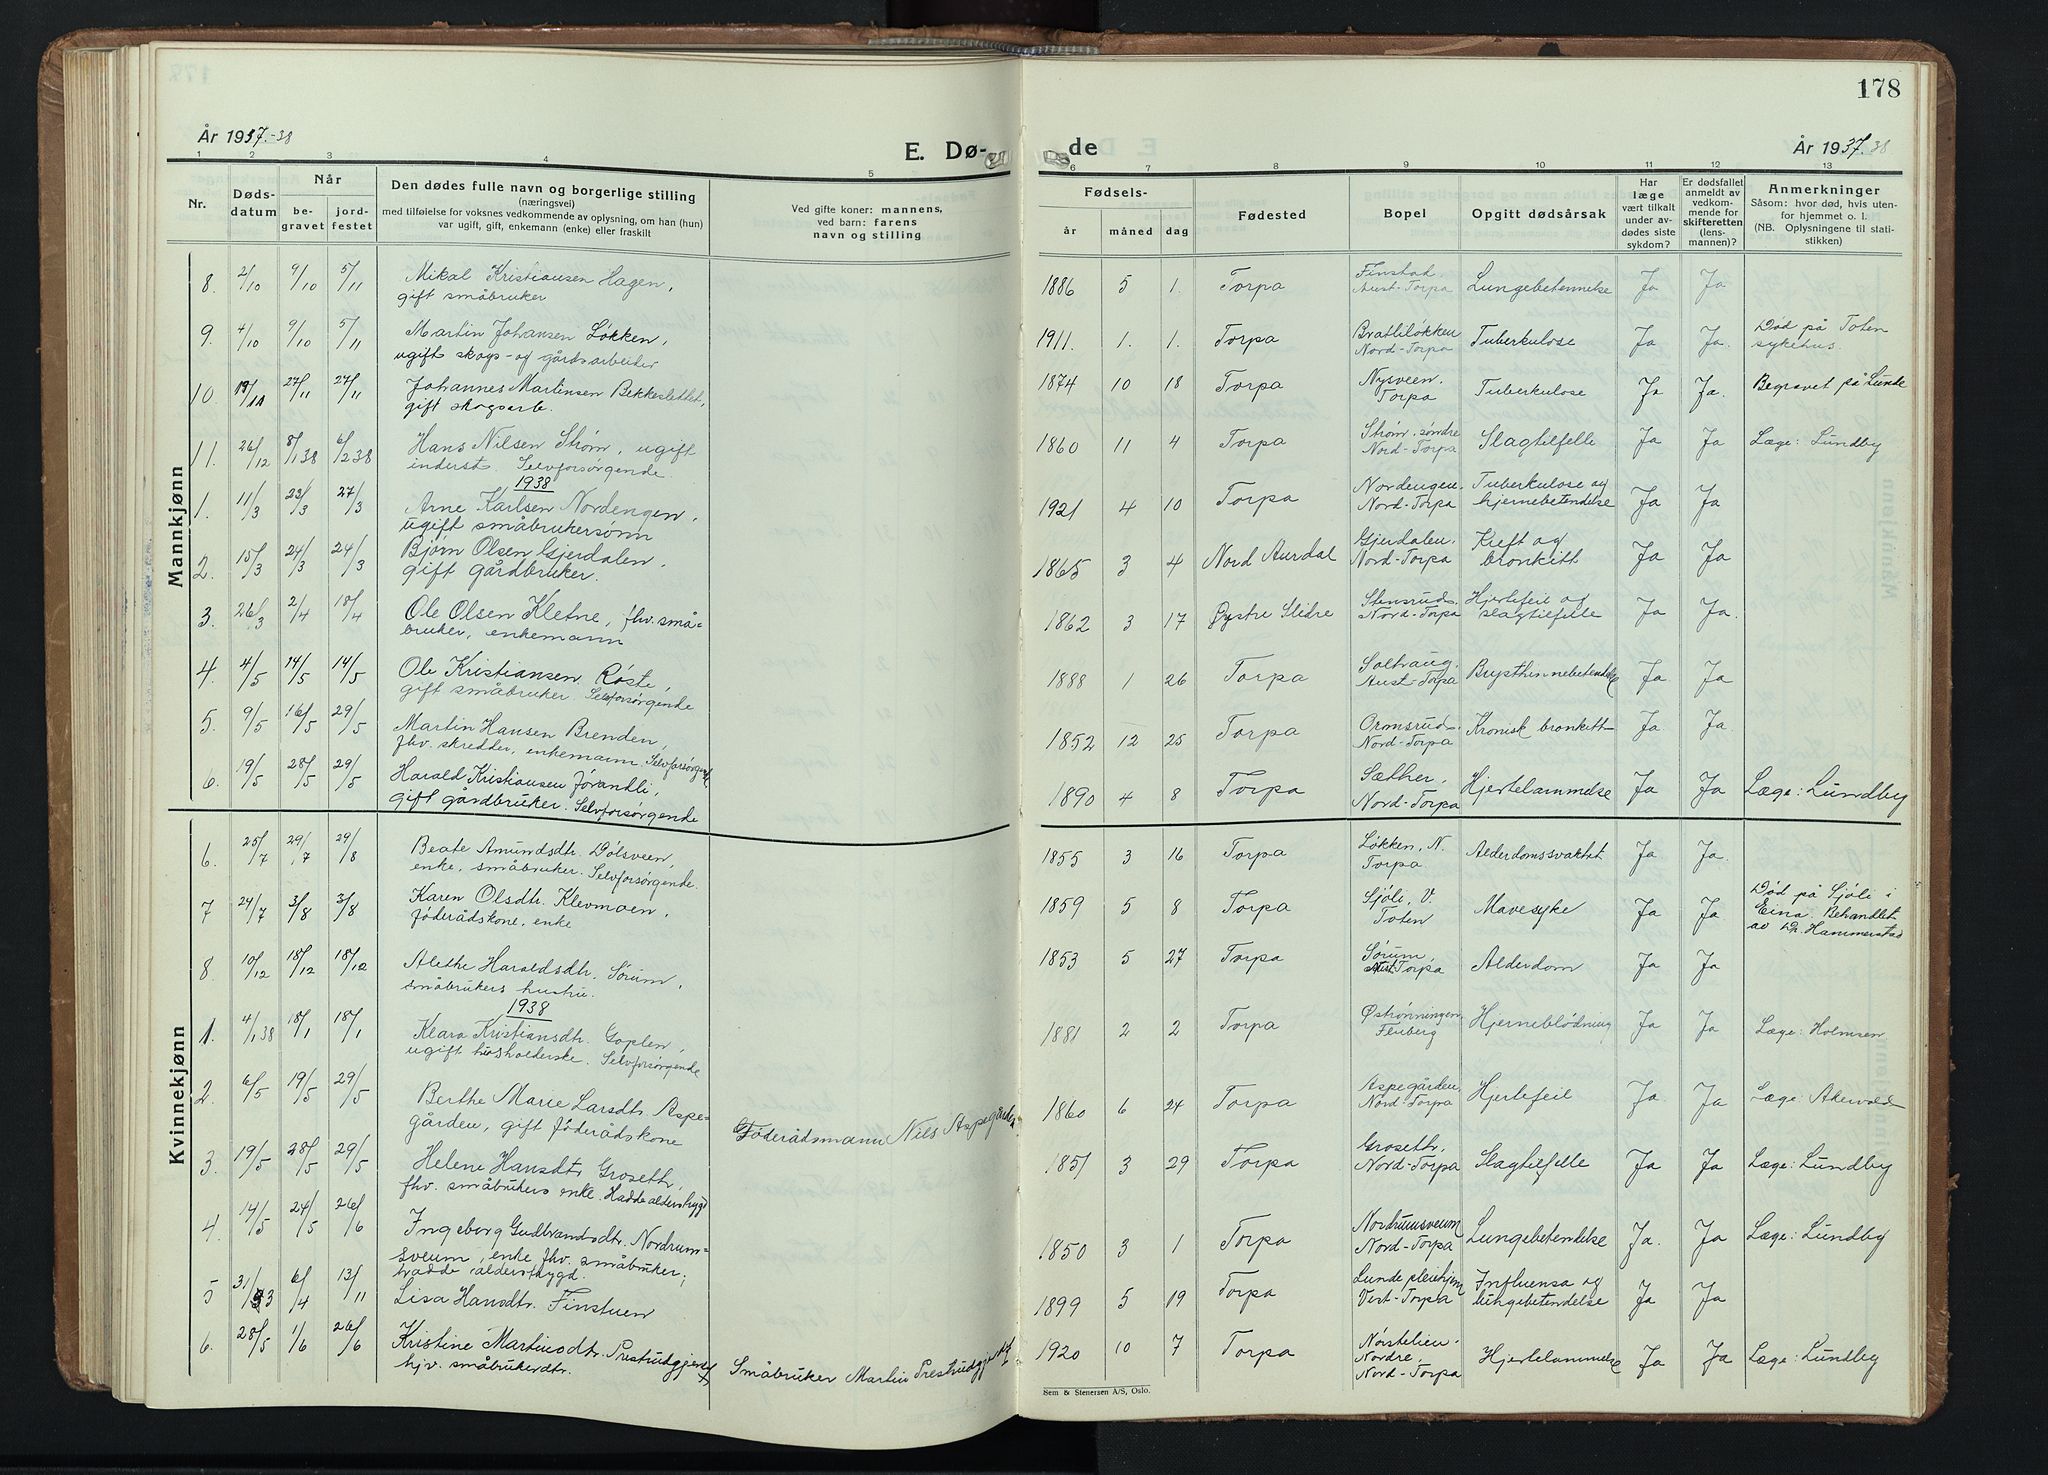 178
År 1937-38
E. Dø-
de
År 1937-38
1 2 3 4 5 6 7 8 9 10 11 12 13
Nr.
Døds-
datum
Når
be-
gravet
jord-
festet
Den dødes fulle navn og borgerlige stilling
(næringsvei)
med tilføielse for voksnes vedkommende av oplysning, om han (hun)
var ugift, gift, enkemann (enke) eller fraskilt
Ved gifte koner: mannens,
ved barn: farens
navn og stilling
Fødsels-
år måned dag
Fødested
Bopel
Opgitt dødsårsak
Har
læge
vært tilkalt
under av-
dødes siste
sykdom?
Er dødsfallet
anmeldt av
vedkom-
mende for
skifteretten
(lens-
mannen)?
Anmerkninger
Såsom: hvor død, hvis uten-
for hjemmet o. l.
(NB. Oplysningene til stati-
stikken)
Mannkjønn
8. 2/10 9/10 5/11 Mikal Kristiansen Hagen,
gift småbruker
1886 5 1. Torpa Finstad, Aust-Torpa Lungebetennelse Ja Ja
9. 4/10 9/10 5/11 Martin Johansen Løkken,
ugift skogs- og gårdsarbeider
1911. 1. 1. Torpa Bratliløkken Nord-Torpa Tuberkulose Ja Ja. Død på Toten
sykehus.
10. 19/11 27/11 27/11 Johannes Martinsen Bekkeslettet,
gift skogsarb.
1874 10 18 Torpa Nysveen, Torpa Tuberkulose Ja Ja. Begravet på Lunde
11. 26/12 8/1 38 6/2 38 Hans Nilsen Strøm, ugift
inderst. Selvforsørgende
1860 11 4 Torpa Strøm, søndre Nord-Torpa Slagtilfelle Ja Ja Læge: Lundby
1938
1. 11/3 23/3 27/3 Arne Karlsen Nordengen,
ugift småbrukersønn
1921 4 10 Torpa Nordengen, Nord-Torpa Tuberkulose og
hjernebetendelse Ja Ja
2. 15/3 24/3 24/3 Bjørn Olsen Gjerdalen,
gift gårdbruker.
1865 3 4 Nord Aurdal Gjerdalen, Nord-Torpa Kreft og
bronkitt Ja Ja
3. 26/3 2/4 18/4 Ole Olsen Kletne, fhv. små-
bruker, enkemann
1862 3 17 Øystre Slidre Stensrud, Nord-Torpa Hjertefeil og
slagtilfelle Ja Ja.
4. 4/5 14/5 14/5 Ole Kristiansen Røste,
gift småbruker. Selvforsørgende
1888 1 26 Torpa Aust-Torpa Brysthinnebetendelse Ja Ja
5. 9/5 16/5 29/5 Martin Hansen Brenden,
fhv. skredder, enkemann. Selvforsørgende
1852 12 25 Torpa Ormsrud, Nord-Torpa Kronisk bronkitt Ja Ja
6. 19/5 28/5 29/5 Harald Kristiansen Jørandli,
gift gårdbruker. Selvforsørgende
1890 4 8 Torpa Sæther, Nord-Torpa Hjertelammelse Ja Ja Læge: Lundby
Kvinnekjønn
6. 25/7 29/7 29/8 Beate Amundsdtr. Dølsveen,
enke, småbruker. Selvforsørgende.
1855 3 16 Torpa Løkken, N. Torpa Alderdomssvakhet Ja Ja.
7 24/7 3/8 3/8 Karen Olsdtr. Klevmoen,
føderådskone, enke
1859 5 8 Torpa Sjøli, V. Toten Mavesyke Ja Ja. Død på Sjøli i
Eina. Behandlet
av Dr. Hammerstad
8 10/12 18/12 18/12 Alethe Haraldsdtr. Sørum,
småbrukers hustru.
1853 5 27 Torpa Sørum, Aust Torpa Alderdom Ja Ja
1938
1. 4/1 38 18/1 18/1 Klara Kristiansdtr. Goplen,
ugift husholderske. Selvforsørgende
1881 2 2 Torpa Østrønningen, Fluberg Hjerneblødning Ja Ja Læge: Holmsen
2 6/5 19/5 29/5 Berthe Marie Larsdtr. Aspe-
gården, gift føderådskone
Føderådsmann Nils Aspegården
1860 6 24 Torpa Aspegården, Nord-Torpa Hjertefeil Ja Ja Læge: Akevold
3. 19/5 28/5 29/5 Helene Hansdtr. Groseth,
fhv. småbrukers enke. Hadde alderstrygd
1851 3 29 Torpa Groseth, Nord-Torpa Slagtilfelle Ja Ja Læge: Lundby
4. 14/5 24/5 26/6 Ingeborg Gudbrandsdtr. Nordrum-
sveum, enke fhv. småbruker;
hadde alderstrygd.
1850 3 1 Torpa Nordrumsveum Nord-Torpa Lungebetendelse Ja. Ja Læge: Lundby
5 31/3 6/4 13/11 Lisa Hansdtr. Finstuen
1899 5 19 Torpa Lunde pleiehjem Vest-Torpa Influensa og
lungebetendelse Ja Ja
6. 28/5 1/6 26/6 Kristine Martinsdtr. Prestrudgjerdet
hjv. småbrukerdtr.
Småbruker Martin Prestrudgjerdet
1920 10 7 Torpa Nørstelien, Nordre, Nord-Torpa Hjertelammelse Ja Ja Læge: Lundby
Sem & Stenersen A/S, Oslo.